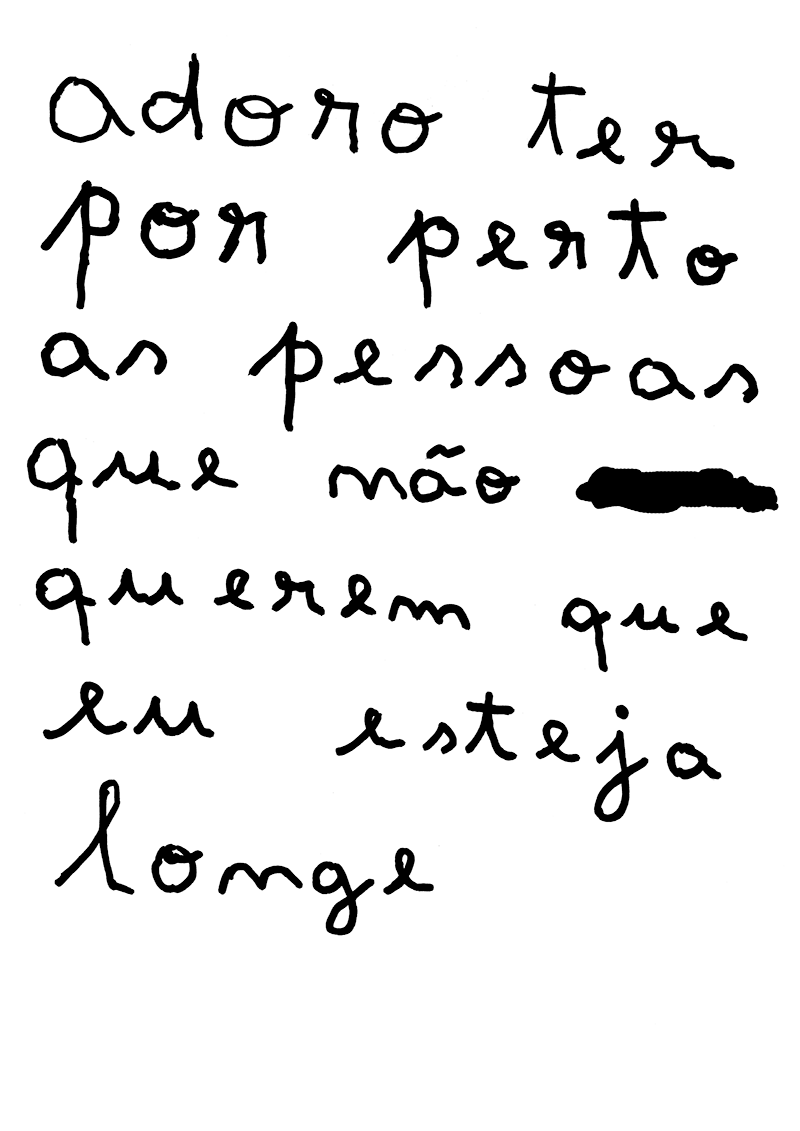 adoro ter
por perto
as pessoas
que não
querem que
eu esteja
longe